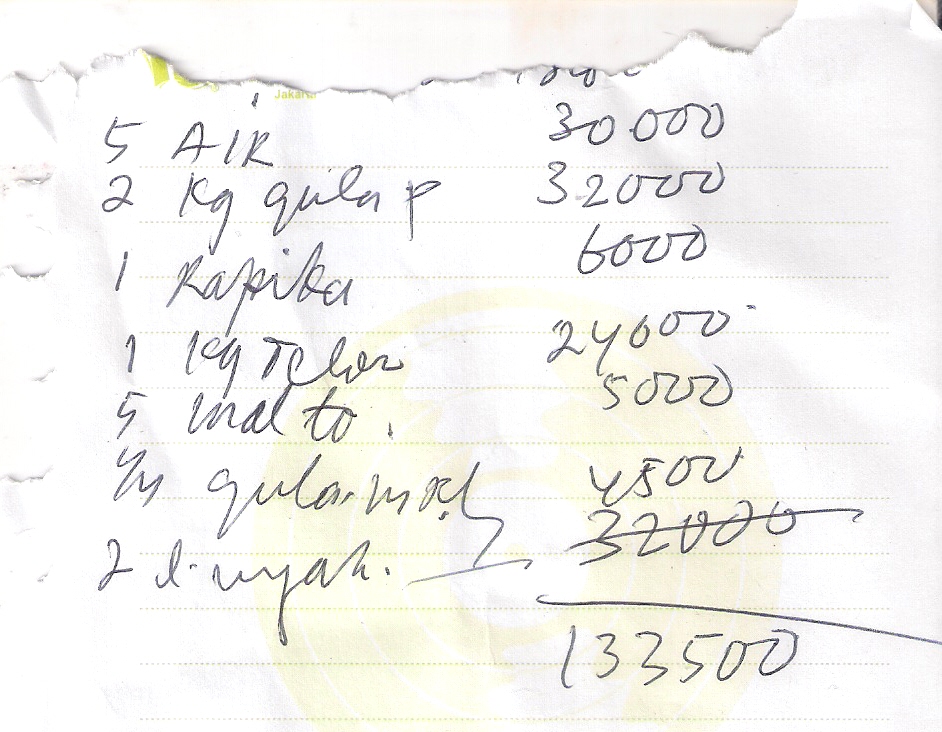 Jakarta
5 AIR 30.000
2 Kg gula p 32000
1 Kapika 6000
1 Kg Telor 24000
5 indo to. 5000
gula 4500
2 l. 32000
133500